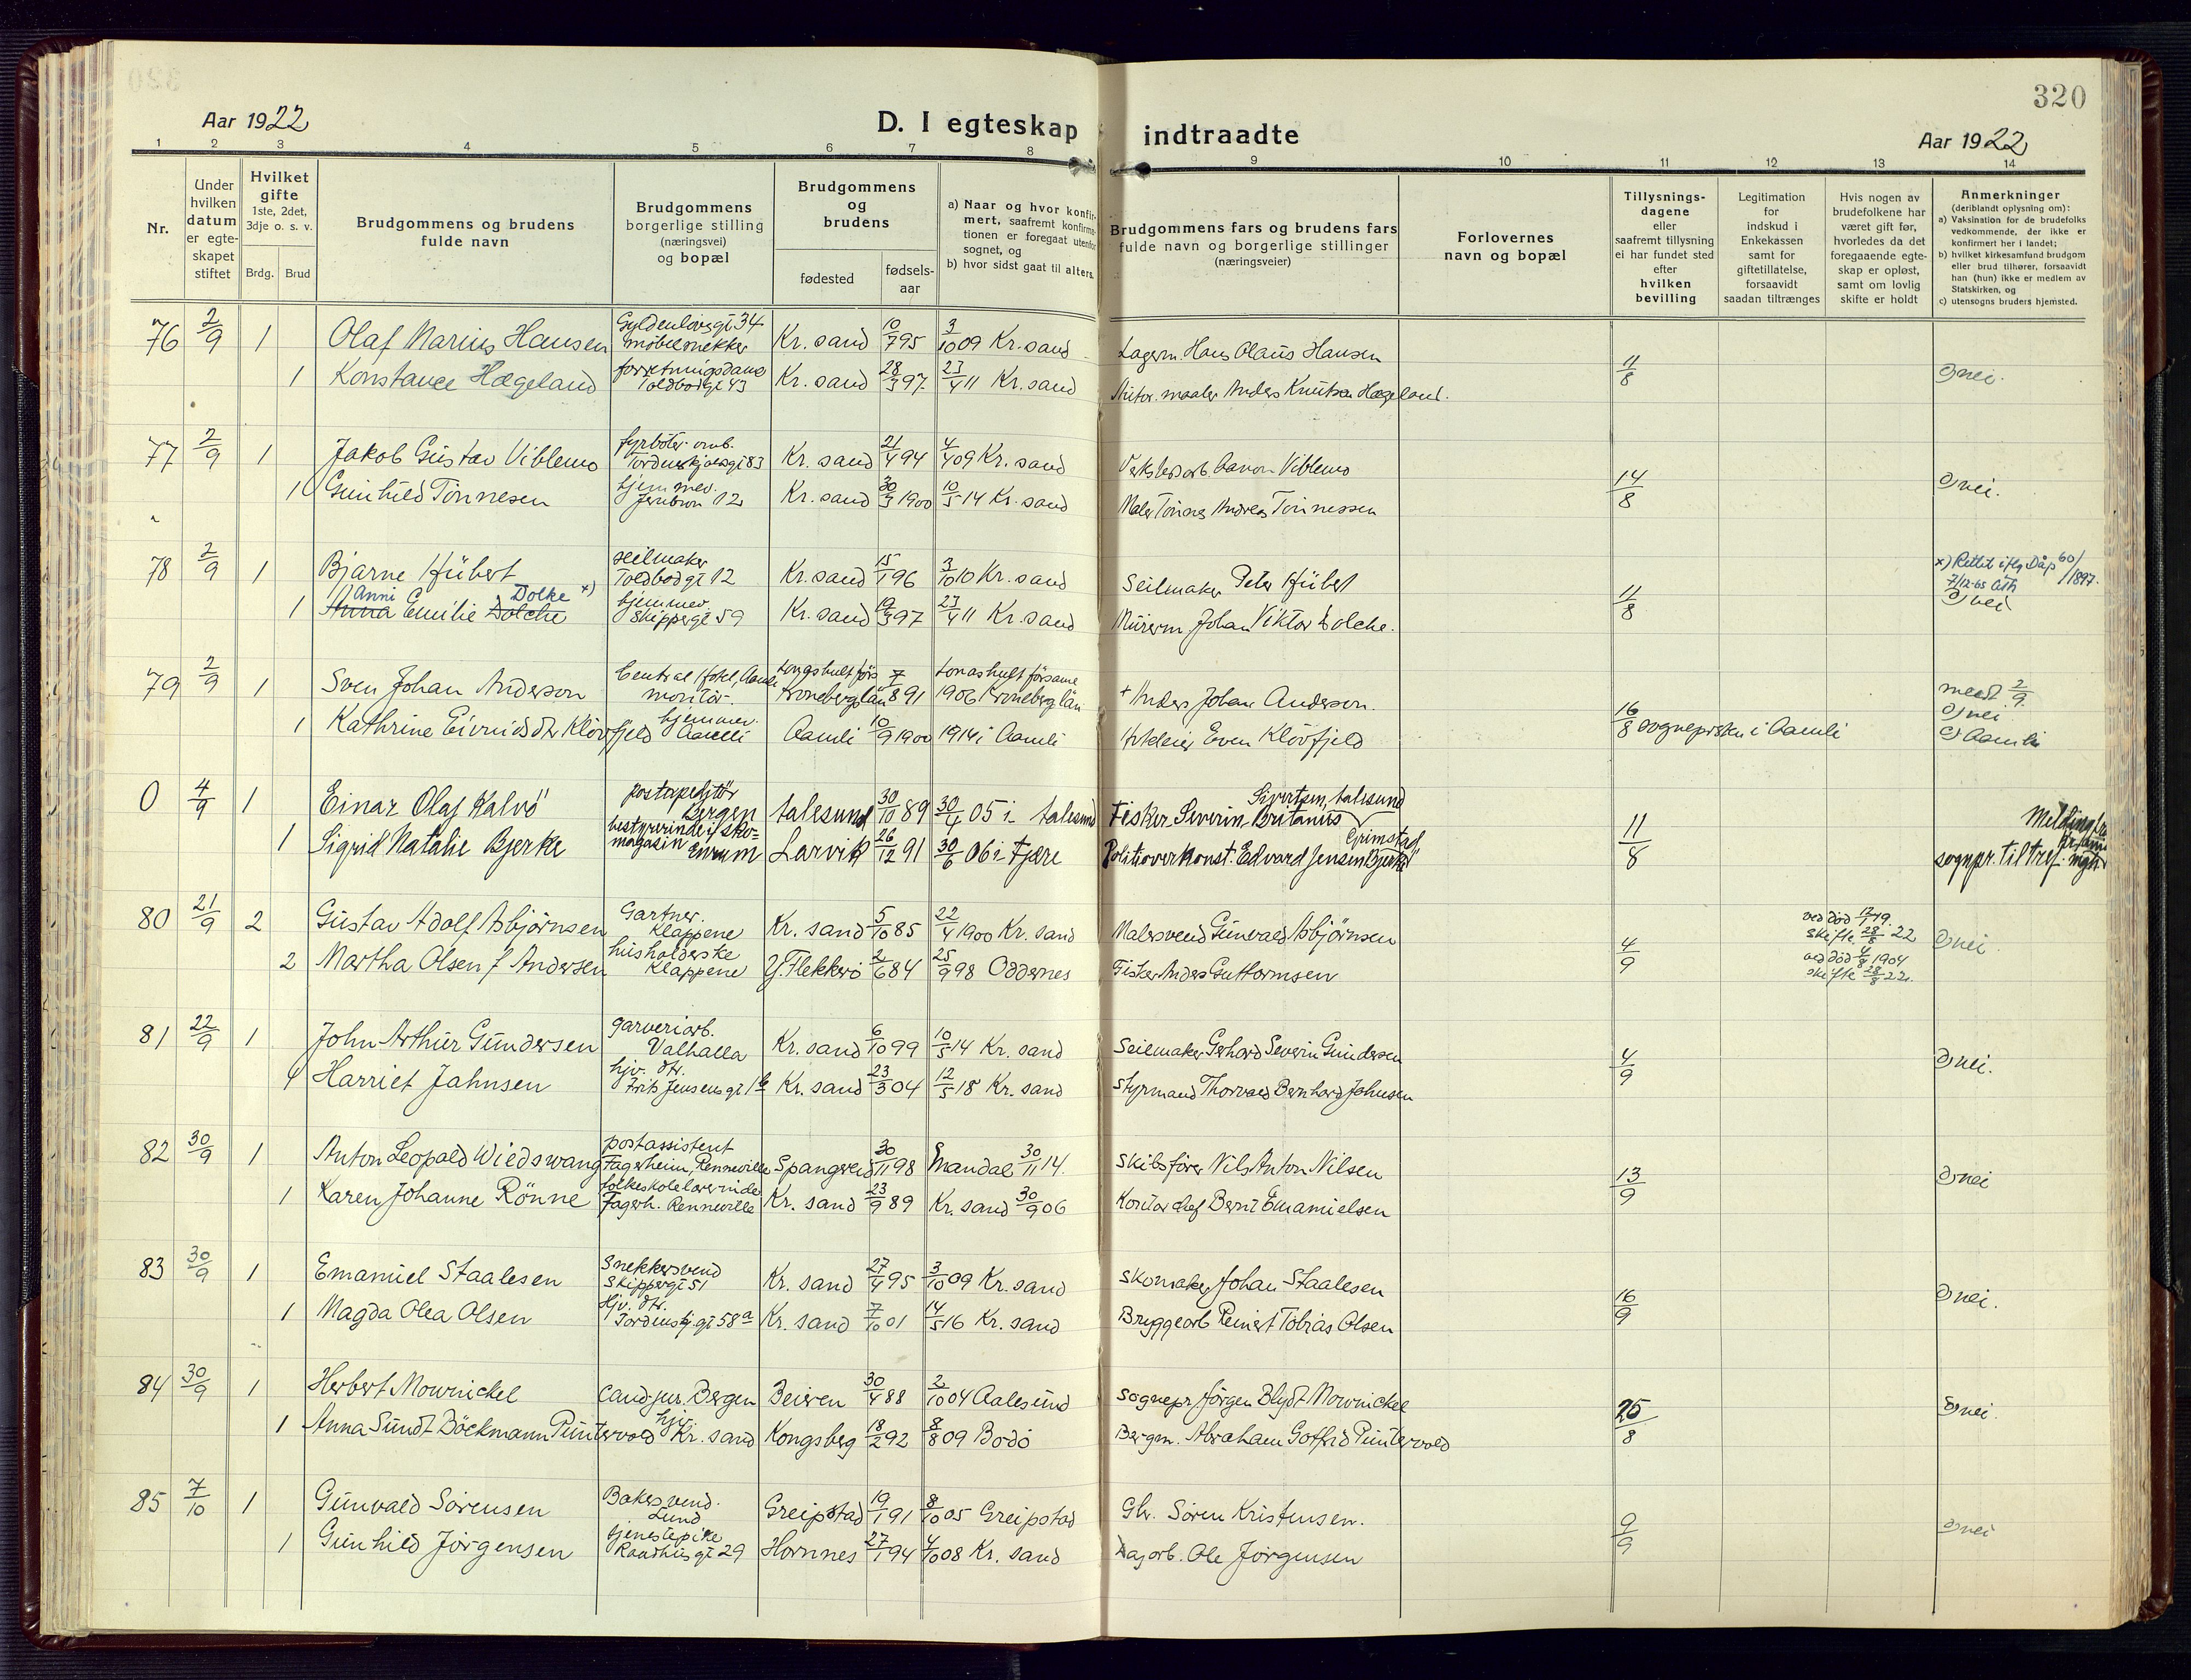 320
Aar 1922
D. I egteskap indtraadte
Aar 1922
1 2 3 4 5 6 7 8 9 10 11 12 13 14
Nr.
Under hvilken datum er egteskapet stiftet
Hvilket gifte 1ste, 2det, 3dje o. s. v.
Brdg. Brud
Brudgommens og brudens fulde navn
Brudgommens borgerlige stilling (næringsvei) og bopæl
Brudgommens og brudens
fødested
fødselsaar
a) Naar og hvor konfirmert, saafremt konfirmationen er foregaat utenfor sognet, og
b) hvor sidst gaat til alters.
Brudgommens fars og brudens fars fulde navn og borgerlige stillinger (næringsveier)
Forlovernes navn og bopæl
Tillysningsdagene eller saafremt tillysning ei har fundet sted efter hvilken bevilling
Legitimation for indskud i Enkekassen samt for giftetillatelse, forsaavidt saadan tiltrænges
Hvis nogen av brudefolkene har været gift før, hvorledes da det foregaaende egteskap er opløst, samt om lovlig skifte er holdt
Anmerkninger (deriblandt oplysning om):
a) Vaksination for de brudefolks vedkommende, der ikke er konfirmert her i landet;
b) hvilket kirkesamfund brudgom eller brud tilhører, forsaavidt han (hun) ikke er medlem av Statskirken, og
c) utensogns bruders hjemsted.
76 2/9 1 Olaf Marius Hansen Gyldenløvsgt 34 møbelsnekker Kr. sand 10/7 95 3/10 09 Kr. sand Lagerm. Hans Olaus Hansen 11/8 a) nei.
1 Konstance Hægeland forretningsdame Toldbodgt 43 Kr. sand 28/3 97 23/4 11 Kr. sand maaler Anders Knutsen Hægeland.
77 2/9 1 Jakob Gustav Viblemo fyrbøter Tordenskjoldsgt 83 Kr. sand 21/4 94 4/4 09 Kr. sand Verkstedarb. Aanon Viblemo 14/8 a) nei.
1 Gunhild Tönnesen hjemmev. 12 Kr. sand 30/3 1900 10/5 14 Kr. sand Maler Tönnes Andreas Tönnessen
78 2/9 1 Bjarne Hübert seilmaker Toldbodgt 12 Kr. sand 15/1 96 3/10 10 Kr. sand Seilmaker Peter Hübert 11/8 x) Rettet iflg. Dåp 60/1897. 7/12-65
1 Anna Anni Emilie Dolche Dolke x) hjemmev. Skippergt 59 Kr. sand 19/3 97 23/4 11 Kr. sand Murerm Johan Viktor Dolche. a) nei
79 2/9 1 Sven Johan Anderson Central Hotel, Aamli montör Kroneberg län 7/8 91 1906 Kroneberg län + Anders Johan Anderson. 16/8 sogneprsten i Aamli meldt 2/9
1 Kathrine Eivindsdtr Klövfjeld hjemmev. Aamli Aamli 10/9 1900 1914 i Aamli Hoteleier Even Klövfjeld a) nei c) Aamli
0 4/9 1 Einar Olaf Kalvö postexpeditör Bergen Aalesund 30/10 89 30/4 05 i Aalesund Fisker Severin Britanus Sivertsen, Aalesund 11/8 Melding fra
1 Sigrid Natalie Bjerke bestyrerinde i skomagasin Larvik 26/12 91 30/6 06 i Fjære Politioverkonst. Edvard Jensen Bjerke Grimstad sognepr. til
80 21/9 2 Gustav Adolf Asbjørnsen Gartner. Klappene Kr. sand 5/10 85 22/4 1900 Kr. sand Malersvend Gunvald Asbjörnsen 4/9 ved död 12/1 19. skifte 28/8 22 a) nei.
2 Martha Olsen f Andersen husholderske Klappene Y. Flekkerö 2/6 84 25/9 98 Oddernes Fisker Anders Guttormsen ved död 4/8 1904 skifte 28/8 22.
81 22/9 1 John Arthur Gundersen garveriarb. Valhalla Kr. sand 6/10 99 10/5 14 Kr. sand Seilmaker Gerhard Severin Gundersen 4/9 a) nei.
1 Harriet Jahnsen hjv. dtr. Fritz Jensens gt 1b Kr. sand 23/3 04 12/5 18 Kr. sand Styrmand Thorvald Bernhard Jahnsen
82 30/9 1 Anton Leopold Wiedswang postassistent Fagerheim, Rennevilla Spangereid 30/11 98 Mandal 30/11 14. Skibsfører Nils Anton Nilsen 13/9 a) nei
1 Karen Johanne Rönne folkeskolelærerinde Fagerh. Rennevilla Kr. sand 23/9 89 Kr. sand 30/9 06 Kontorchef Bernt Emanuelsen
83 30/9 1 Emanuel Staalesen Snekkersvend Skippergt 51 Kr. sand 27/4 95 3/10 09 Kr. sand Skomaker Johan Staalesen 16/9 a) nei.
1 Magda Olea Olsen Hjv. dtr. Tordenskj.gt 58a Kr. sand 7/10 01 14/5 16 Kr. sand Bryggearb Reinert Tobias Olsen
84 30/9 1 Herbert Mowinckel Cand. jur. Bergen Beiren 30/4 88 2/10 04 Aalesund Sognepr Jørgen Blydt Mowinckel 25/8 a) nei.
1 Anna Sundt Böckmann Puntervold hjv. Kr. sand Kongsberg 18/2 92 8/8 09 Bodö Bergm. Abraham Gotfrid Puntervold
85 7/10 1 Gunvald Sörensen Bakersvend. Lund Greipstad 19/1 91 8/10 05 Greipstad Gbr. Sören Kristensen. 9/9 a) nei
1 Gunhild Jörgensen tjenestepike Raadhusgt 29 Hornnes 27/1 94 4/10 08 Kr. sand Dagarb. Ole Jörgensen